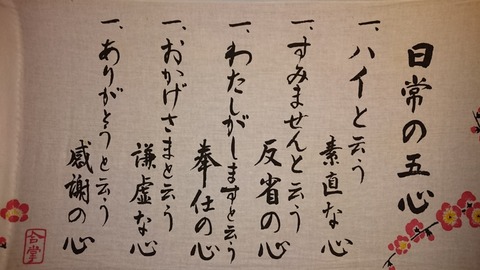 日常の五心
一、ハイと云う
素直な心
一、すみませんと云う
反省の心
一、わたしがしますと云う
奉仕の心
一、おかげさまと云う
謙虚な心
一、ありがとうと云う
感謝の心
合掌